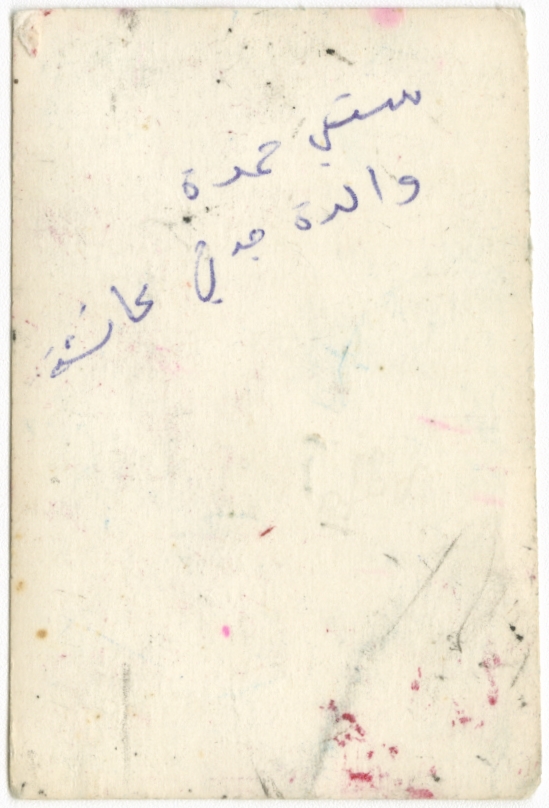 ستي حمدة
والدة جدي عائشة